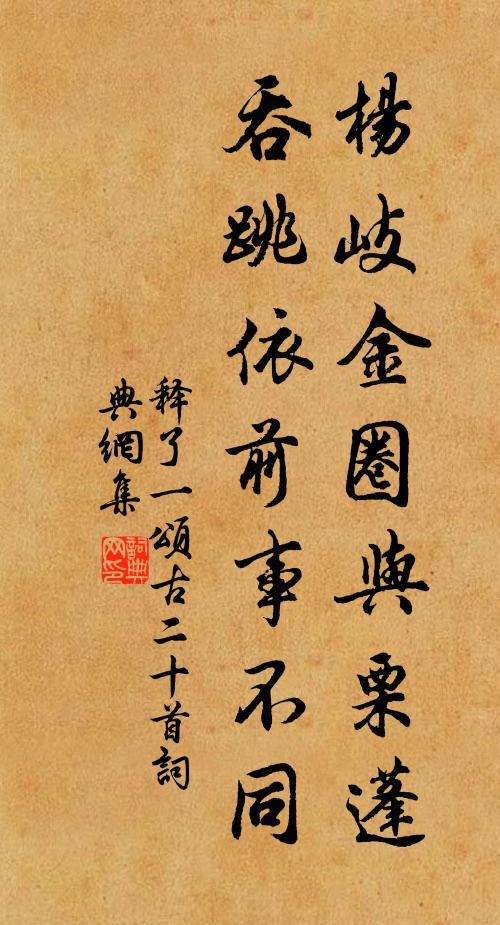 楊岐金圈與栗蓬
吞跳依前事不同
释了一頌古二十首詞
典網集
詞典网印